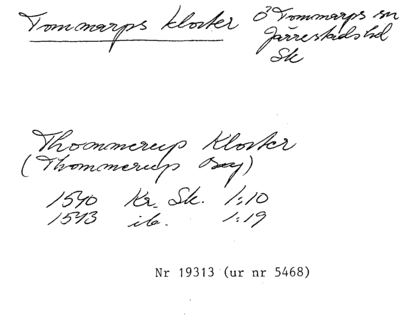 Tommarps kloster Ö Tommarps sn
Järrestads hd
Sk
Thommerup Kloster
(Thommerup Bey)
1540 Kr. Sk. 1:10
1543 ib. 1:19
Nr 19313 (ur nr 5468)